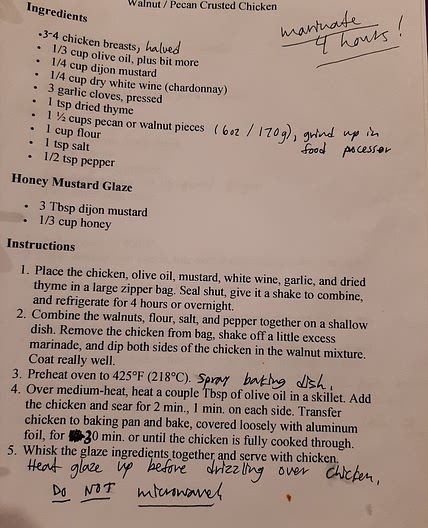 Walnut / Pecan Crusted Chicken
Ingredients
marinate
4 hours!
• 3-4 chicken breasts, halved
• 1/3 cup olive oil, plus bit more
• 1/4 cup dijon mustard
• 1/4 cup dry white wine (chardonnay)
• 3 garlic cloves, pressed
• 1 tsp dried thyme
• 1 ½ cups pecan or walnut pieces (6oz / 170g), grind up in
food pocessor
• 1 cup flour
• 1 tsp salt
• 1/2 tsp pepper
Honey Mustard Glaze
• 3 Tbsp dijon mustard
• 1/3 cup honey
Instructions
1. Place the chicken, olive oil, mustard, white wine, garlic, and dried
thyme in a large zipper bag. Seal shut, give it a shake to combine,
and refrigerate for 4 hours or overnight.
2. Combine the walnuts, flour, salt, and pepper together on a shallow
dish. Remove the chicken from bag, shake off a little excess
marinade, and dip both sides of the chicken in the walnut mixture.
Coat really well.
3. Preheat oven to 425°F (218°C). Spray baking dish.
4. Over medium-heat, heat a couple Tbsp of olive oil in a skillet. Add
the chicken and sear for 2 min., 1 min. on each side. Transfer
chicken to baking pan and bake, covered loosely with aluminum
foil, for 30 min. or until the chicken is fully cooked through.
5. Whisk the glaze ingredients together and serve with chicken.
Heat glaze up before drizzling over chicken,
Do NOT microwave!